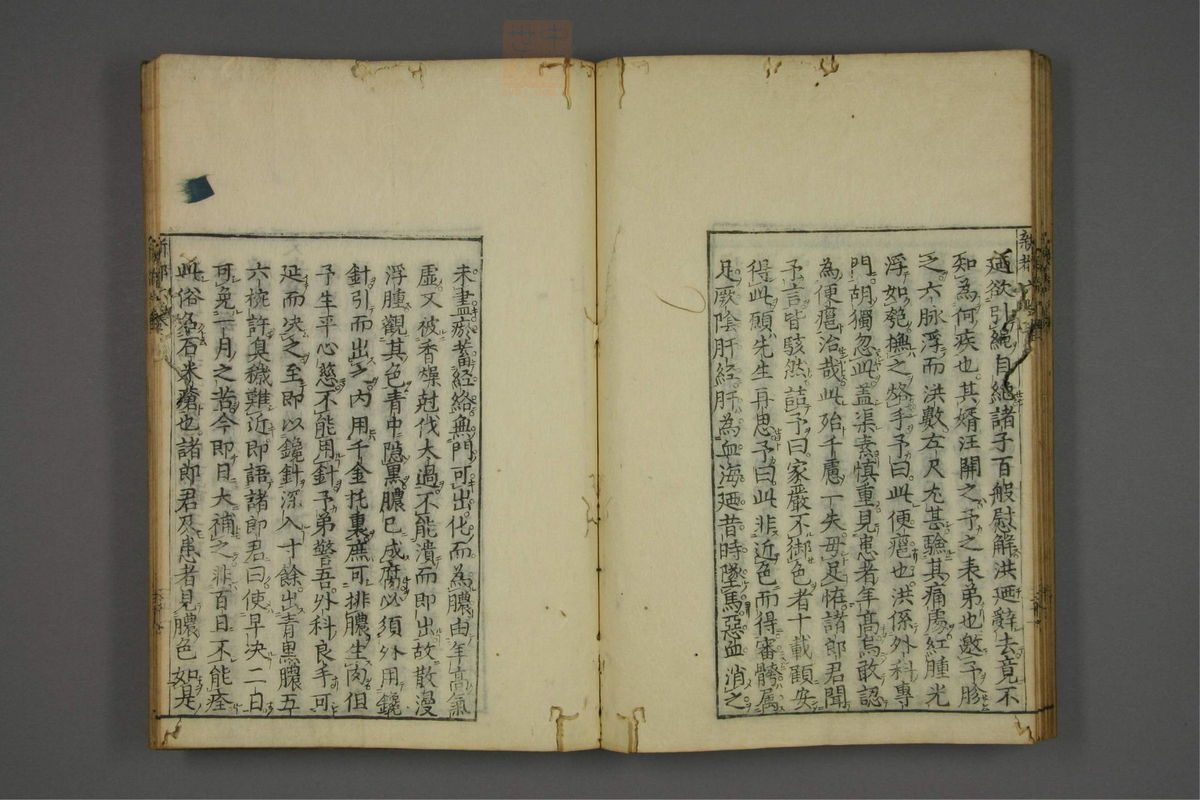 廼欲引繩自絶諸子百般慰解洪廼辭去竟不
知為何疾也其婿汪開之予之表弟也邀予胗
之六脉浮而洪數左尺尤甚驗其痛處紅腫光
浮如匏撫之烙手予曰此便癰也洪係外科專
門胡獨忽此盖渠素慎重見患者年高焉敢認
為便癰治哉此殆千慮一失毋足恠諸郎君聞
予言皆駭然詰予曰家嚴不御色者十載顧安
得此願先生再思予曰此非近色而得審胯属
足厥陰肝經肝為血海廼昔時墜馬惡血消之
未盡瘀蓄經絡無門可出化而為膿由年高氣
虛又被香燥尅伐太過不能潰而即出故散漫
浮腫觀其色青中隱黒膿已成腐必須外用鑱
針引而出之内用千金托裏庶可排膿生肉但
予生平心慈不能用針予弟警吾外科良手可
延而决之至即以鑱針深入寸餘出青黒膿五
六椀許臭穢難近即語諸郎君曰使早决二日
可免一月之苦今即日大補之非百日不能痊
此俗名石米瘡也諸郎君及患者見膿色如是